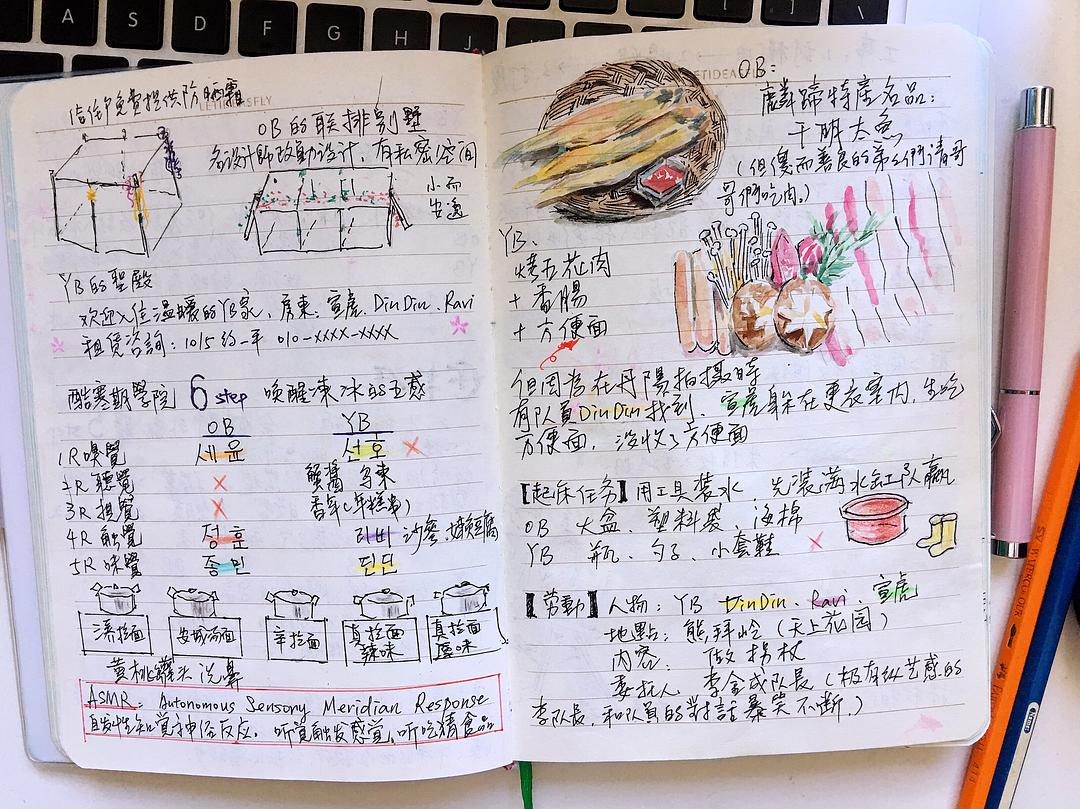 A
S
D
F
G
H
J
住宿免費提供防晒霜
OB的联排别墅
名设計師改動设計，有私密空間
小而
安逸
YB的聖殿
欢迎入住温暖的YB家，房東：宣虎、DinDin、Ravi
租賃咨詢：10/5 约一年 010-xxxx-xxxx
酷寒期學院 6 step 唤醒凍冰的五感
OB YB
1R嗅覺 세윤 선호 ×
2R聽覺 × 蟹醬 烏東
3R視覺 × 香年(年糕串)
4R触覺 정훈 라비 沙参、嫩豆腐
5R味覺 종민 딘딘
湯拉面
安城汤面
辛拉面
真拉面
辣味
真拉面
原味
黄桃罐头洗鼻
ASMR: Autonomous Sensory Meridian Response
自发性知觉神经反应，听觉触发感觉，听吃精食品
OB:
麟蹄特産名品：
干明太鱼
(但傻而善良的弟弟們請哥
哥們吃肉。)
YB、
烤五花肉
+香腸
+方便面
但因为在丹陽拍摄時
有队員DinDin找到、宣虎躲在更衣室内，生吃
方便面，没收了方便面
【起床任务】用工具装水，先装满水缸队赢
OB 大盆、塑料袋、海棉
YB 瓶、勺子、小套鞋 ×
【劳動】人物：YB DinDin、Ravi、宣虎
地點：熊拜岭（天上花园）
内容：做拐杖
委托人 李金成队長（极有纵艺感的
李队長，和队員的對話暴笑不断。）